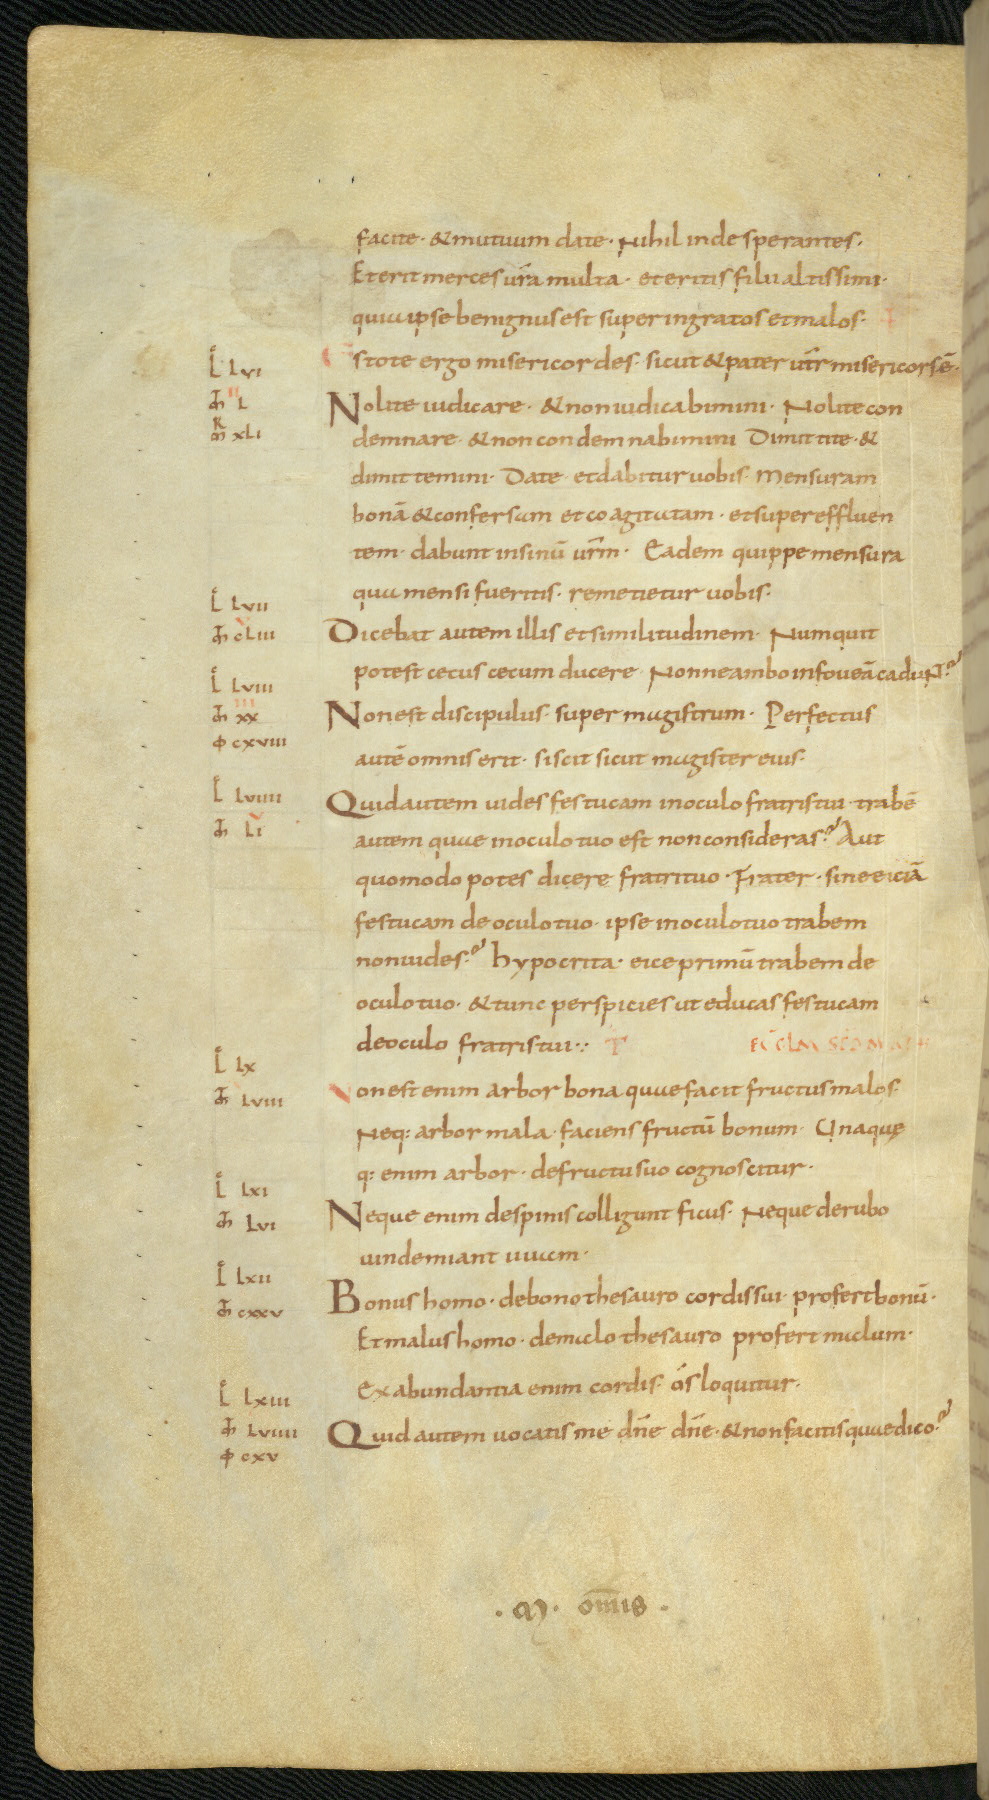 facite · & mutuum date · Nihil inde sperantes ·
Et erit merces ur̄a multa · et eritis filii altissimi ·
quia ipse benignus est super ingratos et malos ·
L̊ LVI Estote ergo misericordes · sicut & pater ur̄ misericors ē ·
m̄ L Nolite iudicare · & non iudicabimini · Nolite con
XLI demnare · & non condemnabimini Dimittite · &
dimittemini · Date et dabitur uobis · Mensuram
bonā & confersam et coagitatam · et supereffluen
tem · dabunt in sinū ur̄m · Eadem quippe mensura
qua mensi fueritis · remetietur uobis ·
L̊ LVII
m̄ CLIII Dicebat autem illis et similitudinem · Numquit
potest cecus cecum ducere · Nonne ambo in foueā cadunt ?
L̊ LVIII
m̄ XX Non est discipulus · super magistrum · Perfectus
φ CXVIII autē omnis erit · si scit sicut magister eius ·
L̊ LVIIII Quid autem uides festucam in oculo fratris tui · trabē
m̄ LI autem quae in oculo tuo est non consideras ? Aut
quomodo potes dicere fratri tuo · Frater · sine eiciā
festucam de oculo tuo · ipse in oculo tuo trabem
non uides ? hypocrita · eice primū trabem de
oculo tuo · & tunc perspicies ut educas festucam
de oculo fratris tui ·:
L̊ LX
m̄ LVIII Non est enim arbor bona quae facit fructus malos ·
Neq: arbor mala · faciens fructū bonum · Unaquę
q: enim arbor · de fructu suo cognoscitur ·
L̊ LXI
m̄ LVI Neque enim de spinis colligunt ficus · Neque de rubo
uindemiant uuam ·
L̊ LXII
m̄ CXXV Bonus homo · de bono thesauro cordis sui · profert bonū ·
Et malus homo · de malo thesauro profert malum ·
Ex abundantia enim cordis · ós loquitur ·
L̊ LXIII
m̄ LVIIII Quid autem uocatis me dn̄e dn̄e · & non facitis quae dico ?
φ CXV